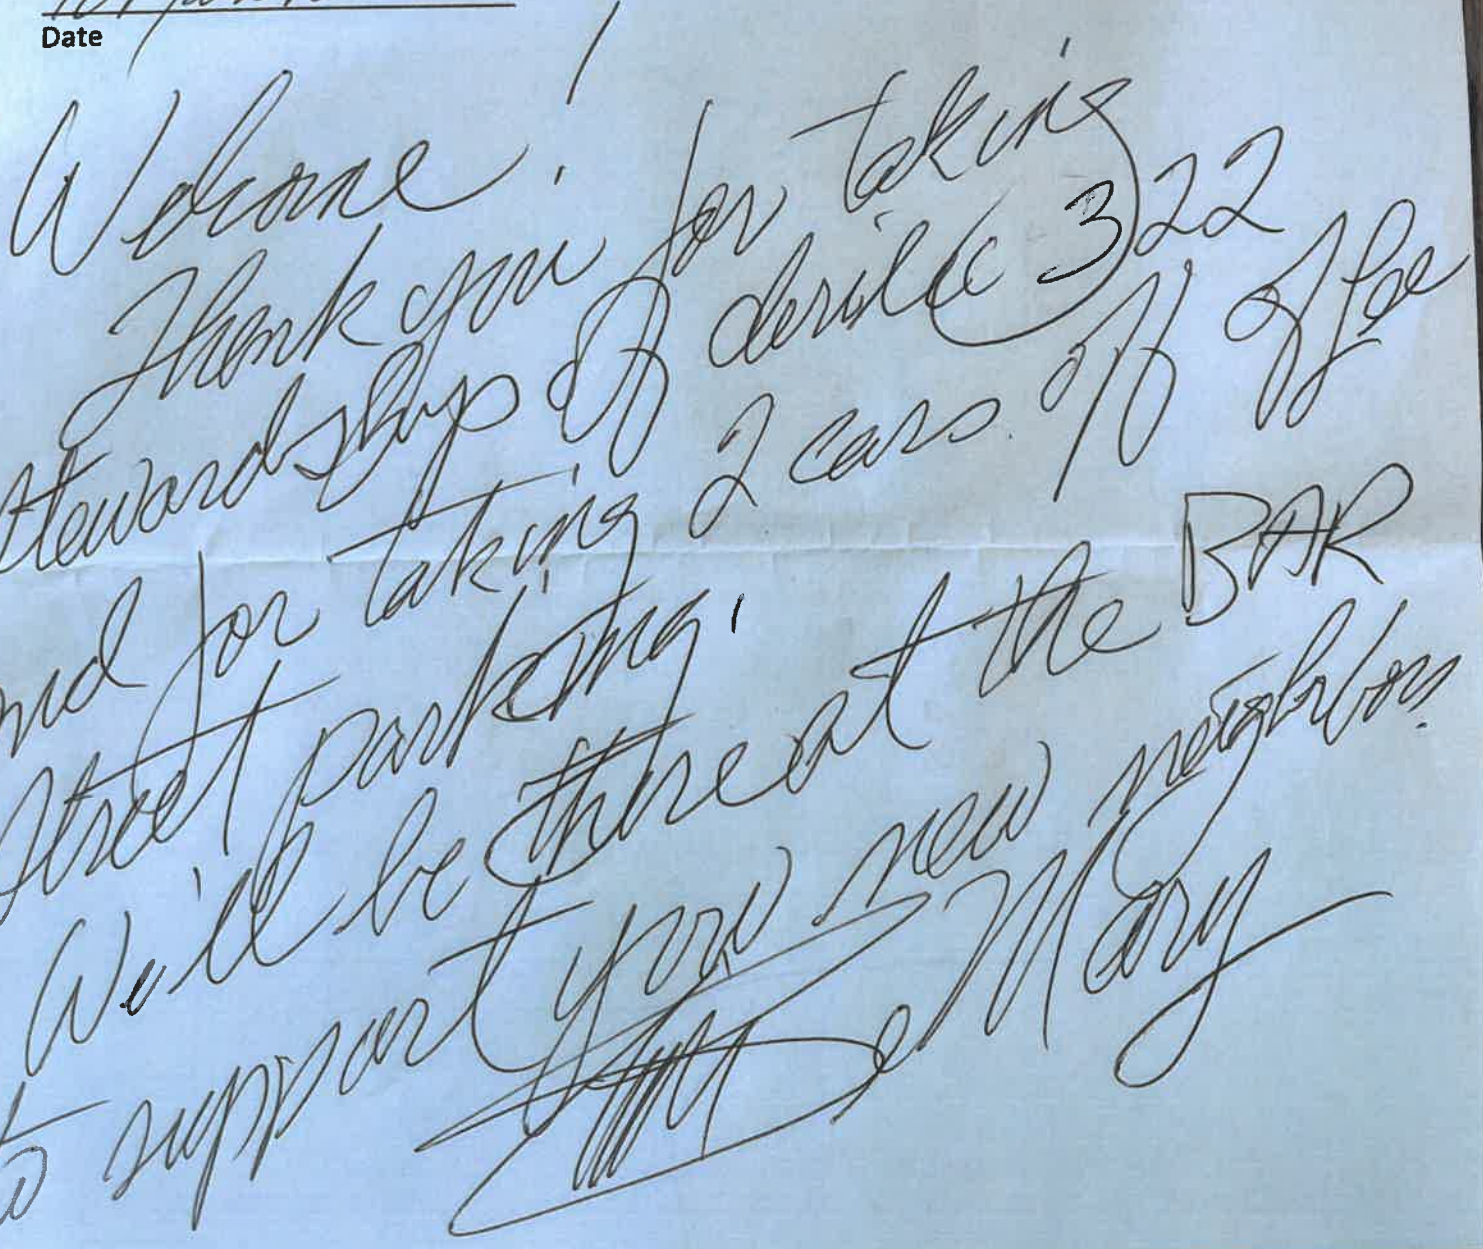 Date
Welcome!
Thank you for taking
stewardships of derilic 322
and for taking 2 cars off of the
street parking!
We'll be there at the BAR
to support you new neighbors.
Mary